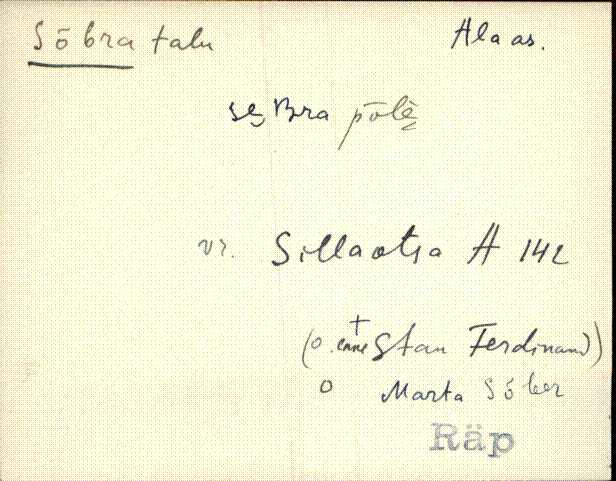 Sõbra talu
Ala as.
se̮Bra pōlè̮
vr. Sillaotsa A 142
(o. enne + Stan Ferdinand)
o Marta Sõber
Räp